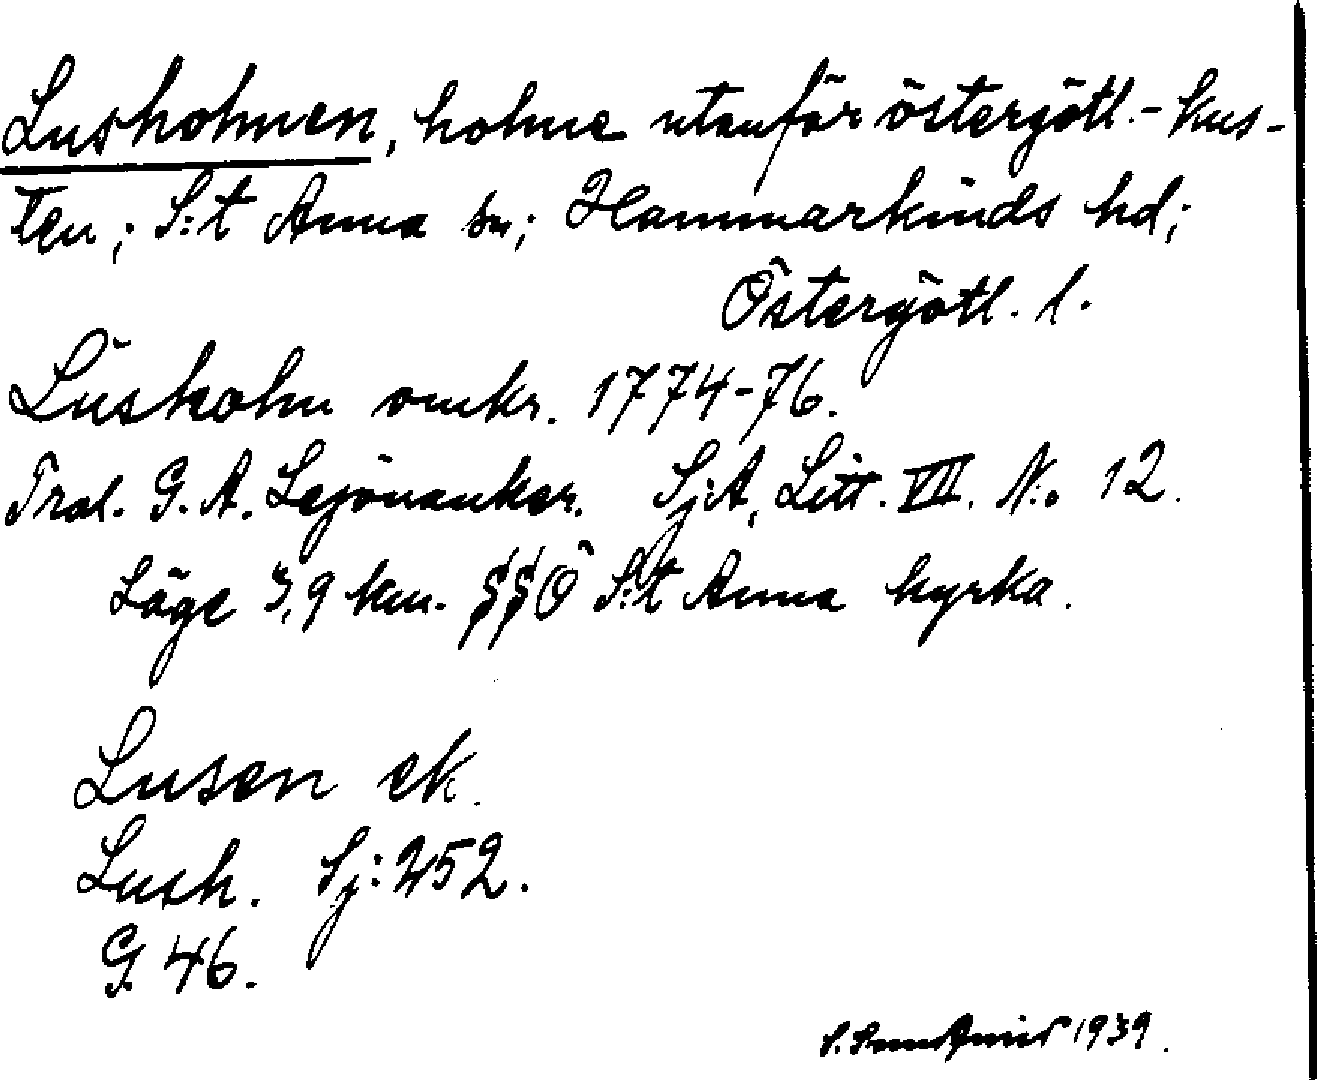 Lusholmen, holme utanför östergötl.-kus-
ten; S:t Anna sn; Hammarkinds hd;
Östergötl. l.
Lusholm omkr. 1774-76.
Tral. G. A. Lejonanker. Sj:A, Litt. VII. N.o 12.
Läge 3,9 km. SSÖ S:t Anna kyrka.
Lusen ek.
Lush. Sj:252.
G. 46.
1939.